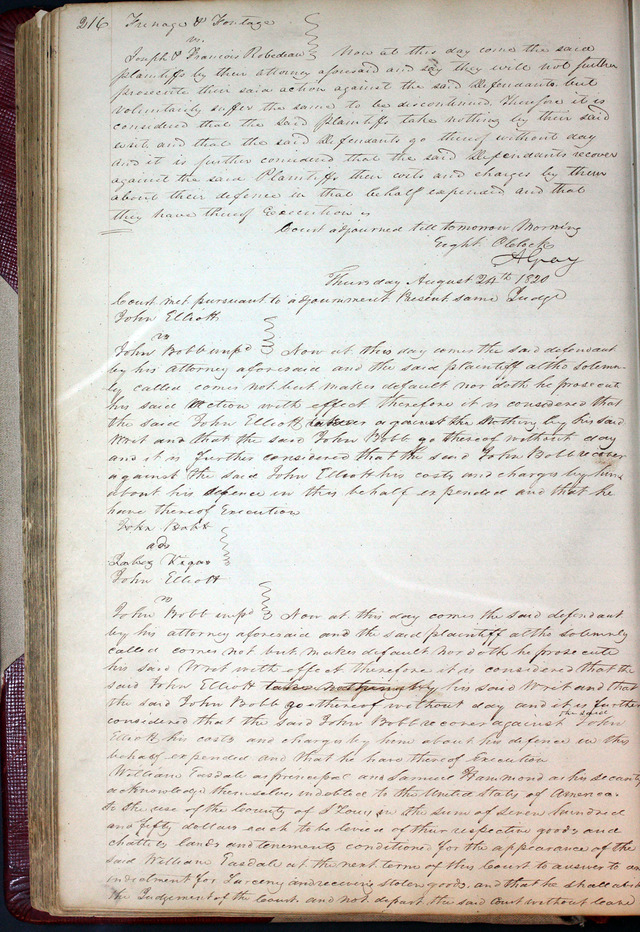 216 Frenage & Fontage
vs.
Joseph & Francois Robedeau Now at this day come the said
plaintiffs by their attorney aforesaid and say they will not further
prosecute their said action against the said Defendants but
voluntarily suffer the same to be discontinued. Therefore it is
considered that the said plaintiffs take nothing by their said
writ and that the said Defendants go thereof without day
and it is further considered that the said Defendants recover
against the said Plaintiffs their costs and charges by them
about their defence in that behalf expended and that
they have thereof Execution
Court adjourned till tomorrow Morning
Eight OClock
A Gray
Thursday August 24th 1820
Court met pursuant to adjournment Present same Judge
John Elliott
vs
John Bobb impd Now at this day comes the said defendant
by his attorney aforesaid and the said plaintiff altho solemn-
ly called comes not but makes default nor doth he prosecute
his said Action with effect therefore it is considered that
the said John Elliott against the Nothing by his said
Writ and that the said John Bobb go thereof without day
and it is further considered that the said John Bobb recover
against the said John Elliott his costs and charges by him
about his defence in this behalf expended and that he
have thereof Execution
John Bobb
ads
John Elliott
vs
John Bobb impd Now at this day comes the said defendant
by his attorney aforesaid and the said plaintiff altho solemnly
called comes not but makes default nor doth he prosecute
his said Writ with effect therefore it is considered that the
said John Elliott take nothing by his said Writ and that
the said John Bobb go thereof without day and it is further
considered that the said John Bobb recover against the said John
Elliott his costs and charges by him about his defence in this
behalf expended and that he have thereof Execution
William Easdale as principal and Samuel Hammond as his security
acknowledge themselves indebted to the United States of America
to the use of the County of St Louis in the sum of Seven hundred
and fifty dollars each to be levied of their respective goods and
chattels lands and tenements conditioned for the appearance of the
said William Easdale at the next term of this Court to answer to an
indictment for Larceny and receiving stolen goods and that he shall abide
the Judgement of the Court and not depart the said Court without leave